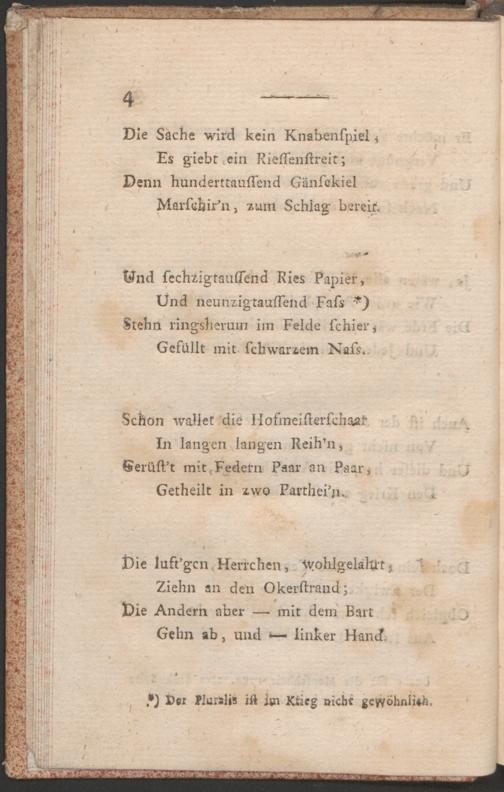 4
Die Sache wird kein Knabenſpiel,
Es giebt ein Rieſſenſtreit;
Denn hunderttauſſend Gänſekiel
Marſchir'n, zum Schlag bereit.
Und ſechzigtauſſend Ries Papier,
Und neunzigtauſſend Faſs *)
Stehn ringsherum im Felde ſchier,
Gefüllt mit ſchwarzem Naſs.
Schon wallet die Hofmeiſterſchaar
In langen langen Reih'n,
Gerüſt't mit Federn Paar an Paar,
Getheilt in zwo Parthei'n.
Die luft'gen Herrchen, wohlgelahrt,
Ziehn an den Okerſtrand;
Die Andern aber — mit dem Bart
Gehn ab, und — linker Hand.
*) Der Pluralis iſt im Krieg nicht gewöhnlich.